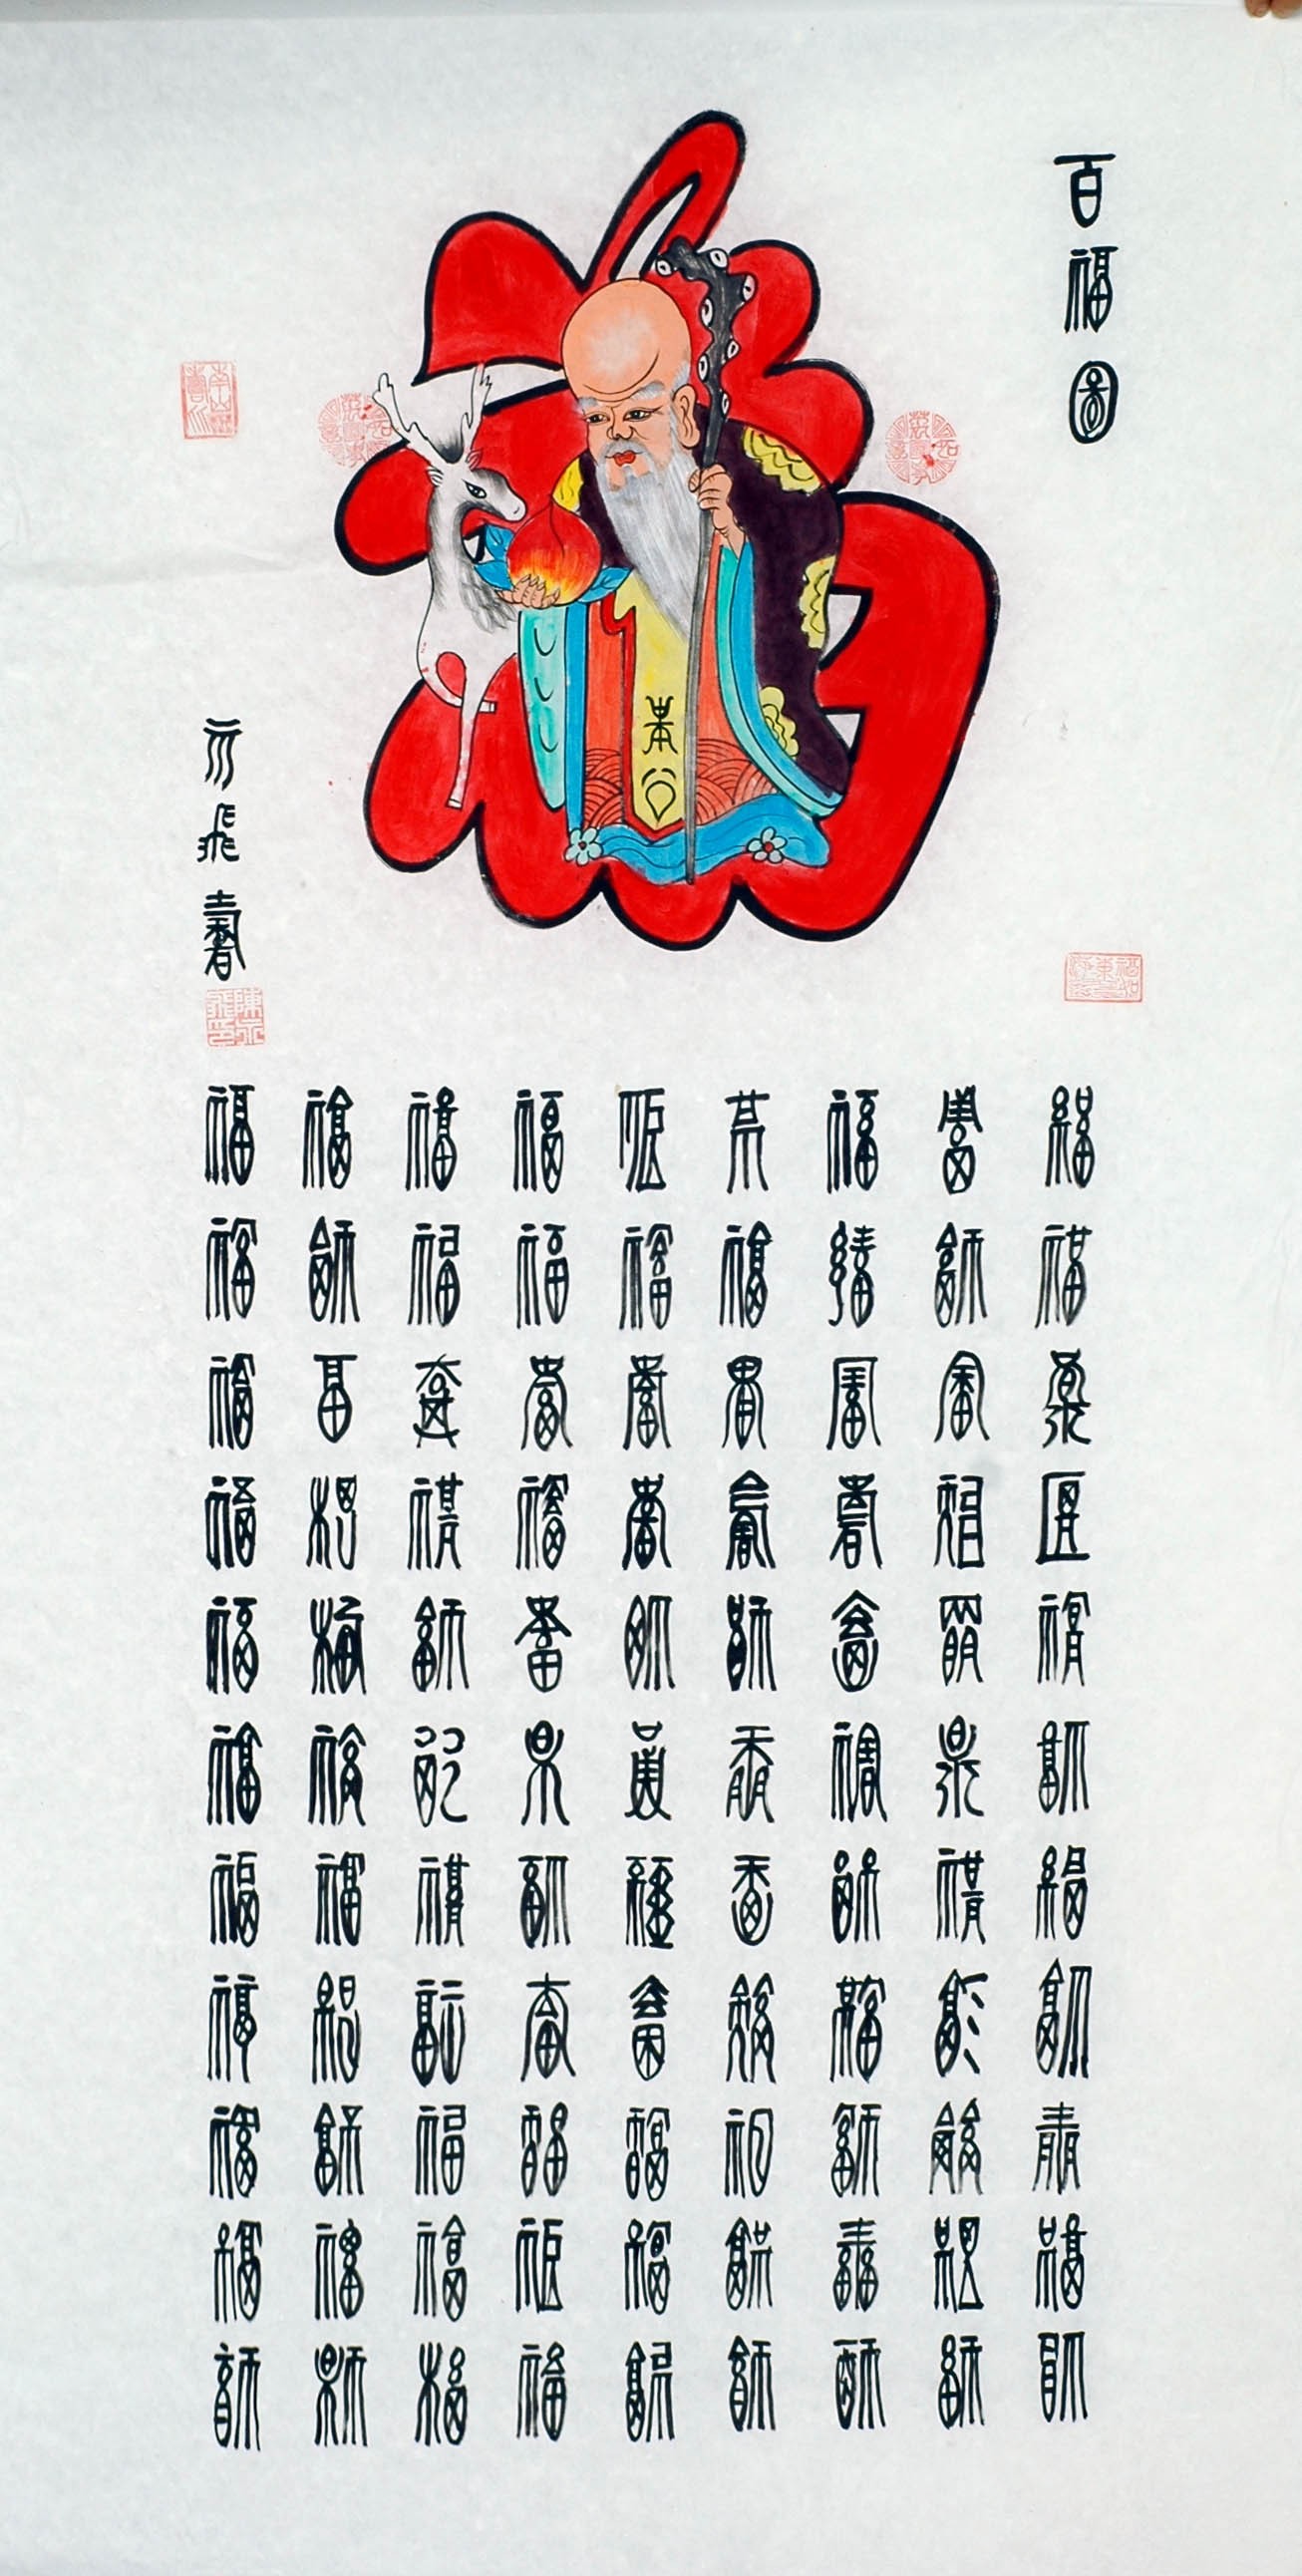 百福圖
福
飛書
福福福福福福福福福福福
福福福福福福福福福福福
福福福福福福福福福福福
福福福福福福福福福福福
福福福福福福福福福福福
福福福福福福福福福福福
福福福福福福福福福福福
福福福福福福福福福福福
福福福福福福福福福福福